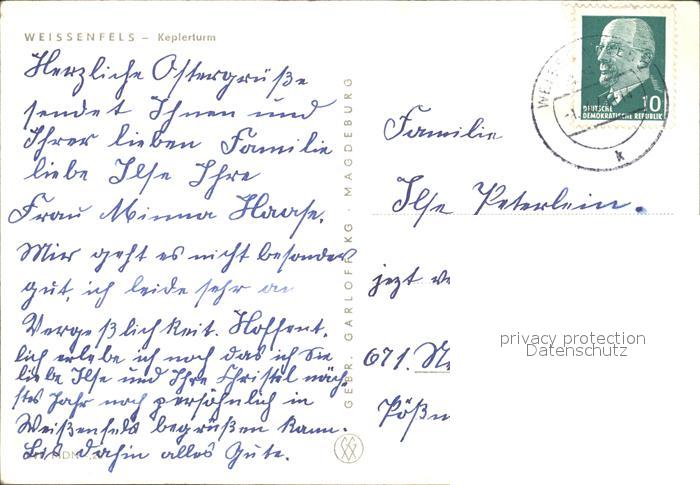 WEISSENFELS – Keplerturm
Herzliche Ostergrüße
sendet Ihnen und
Ihrer lieben Familie
liebe Ilse Ihre
Frau Minna Haase.
Mir geht es nicht besonders
gut, ich leide sehr an
Vergeßlichkeit. Hoffent-
lich erlebe ich noch das ich Sie
liebe Ilse und Ihre Christel näch-
stes Jahr noch persöhnlich in
Weißenfels begrüßen kann.
Bis dahin alles Gute.
GEBR. GARLOFF KG · MAGDEBURG
10
DEUTSCHE
DEMOKRATISCHE REPUBLIK
k
Familie
Ilse Peterlein.
jezt
671.
Pößn
privacy protection
Datenschutz